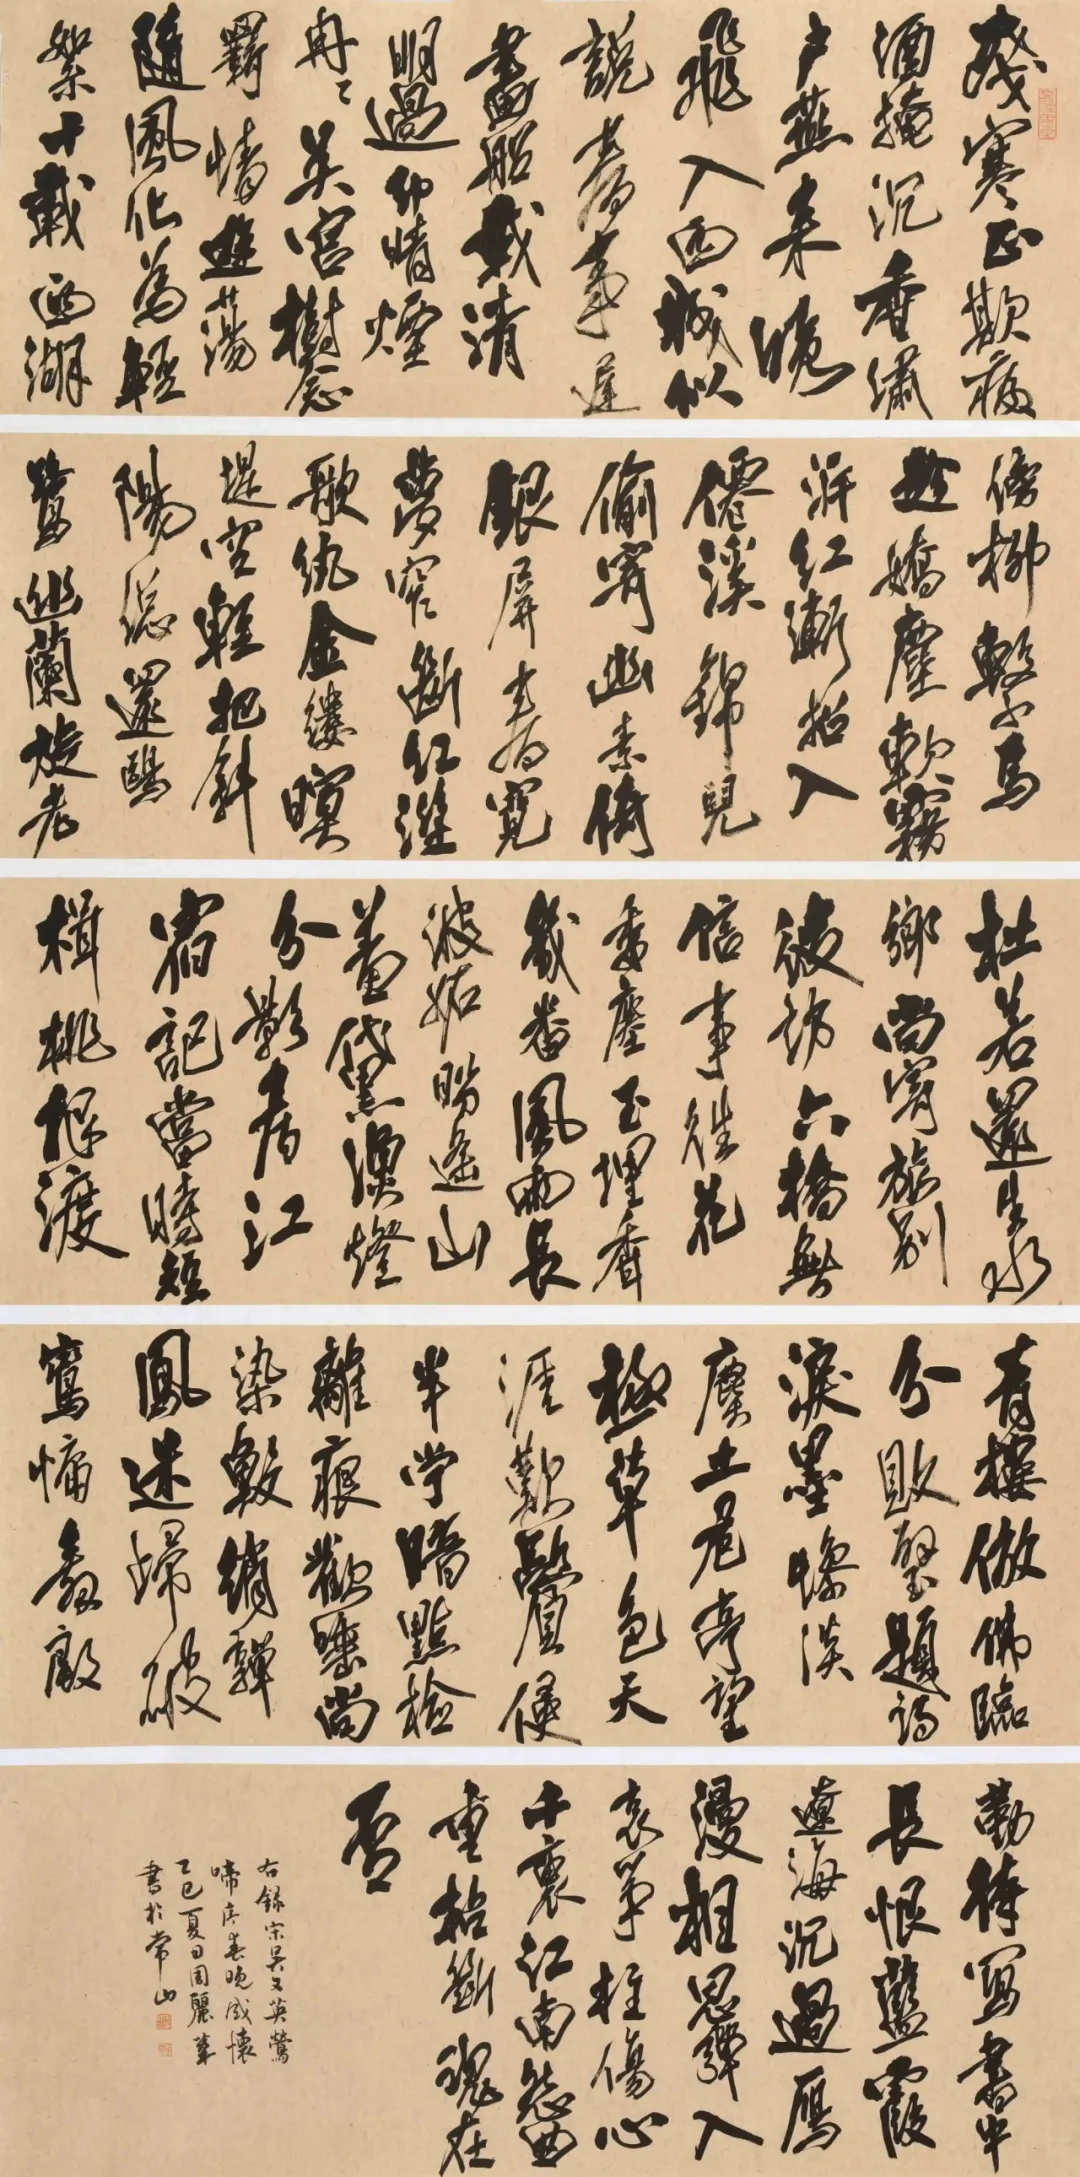 殘寒正欺病
酒掩沉香繡
戶燕來晚
飛入西城似
說春事遲
畫船載清
明過卻晴煙
冉々吳宮樹念
羈情遊蕩
隨風化為輕
絮十載西湖
傍柳繫馬
趁嬌塵軟霧
溯紅漸招入
僊溪錦兒
偷寄幽素倚
銀屏春寬
夢窄斷紅溼
歌紈金縷暝
堤空輕把斜
陽總還鷗
鷺幽蘭旋老
杜若還生水
鄉尚寄旅別
後訪六橋無
信事往花
委塵玉埋香
幾番風雨長
波妒盼遙山
羞黛漁燈
分影春江
宿記當時短
楫桃根渡
青樓倣佛臨
分敗壁題詩
淚墨慘淡
塵土危亭望
極草色天
涯歎鬢侵
半苧暗點檢
離痕歡唾尚
染鮫綃嚲
鳳迷歸破
鸞慵舞殷
勤待寫書中
長恨藍霞
遼海沉過鴈
漫相思彈入
哀箏柱傷心
千裏江南怨曲
重招斷魂在
否
右錄宋吳文英鶯
啼序春晚感懷
乙巳夏日周麗華
書於常山